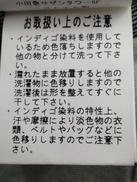 お取扱い上のご注意
・インディゴ染料を使用して
いるため色落ちしますので
他の物と分けて洗って下さ
い。
・濡れたまま放置すると他の
洗濯物に色移りしますので
洗濯後は形を整えてすぐに
干して下さい。
・インディゴ染料の特性上、
汗や摩擦により淡色物の衣
類、ベルトやバッグなどに
色移りしますのでご注意下
さい。